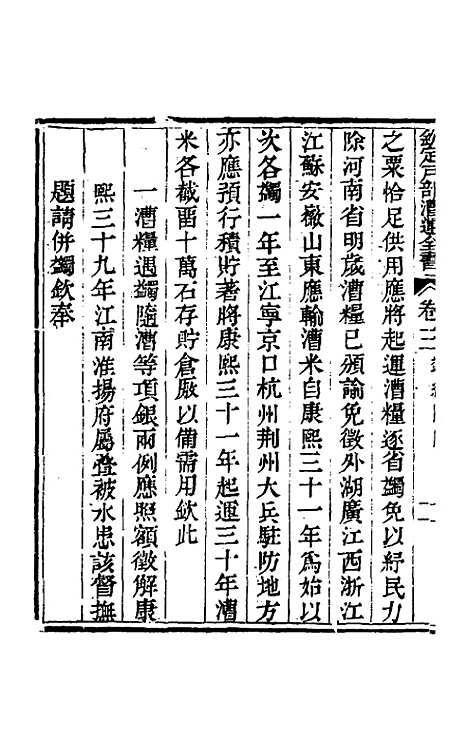 欽定戶部漕運全書 卷三
之粟恰足供用應將起運漕糧逐省蠲免以紓民力
除河南省明歲漕糧已頒諭免徵外湖廣江西浙江
江蘇安徽山東應輸漕米自康熙三十一年爲始以
次各蠲一年至江寧京口杭州荆州大兵駐防地方
亦應預行積貯著將康熙三十一年起運三十年漕
米各截畱十萬石存貯倉厫以備需用欽此
一漕糧遇蠲隨漕等項銀兩例應照額徵解康
熙三十九年江南淮揚府屬疊被水患該督撫
題請併蠲欽奉